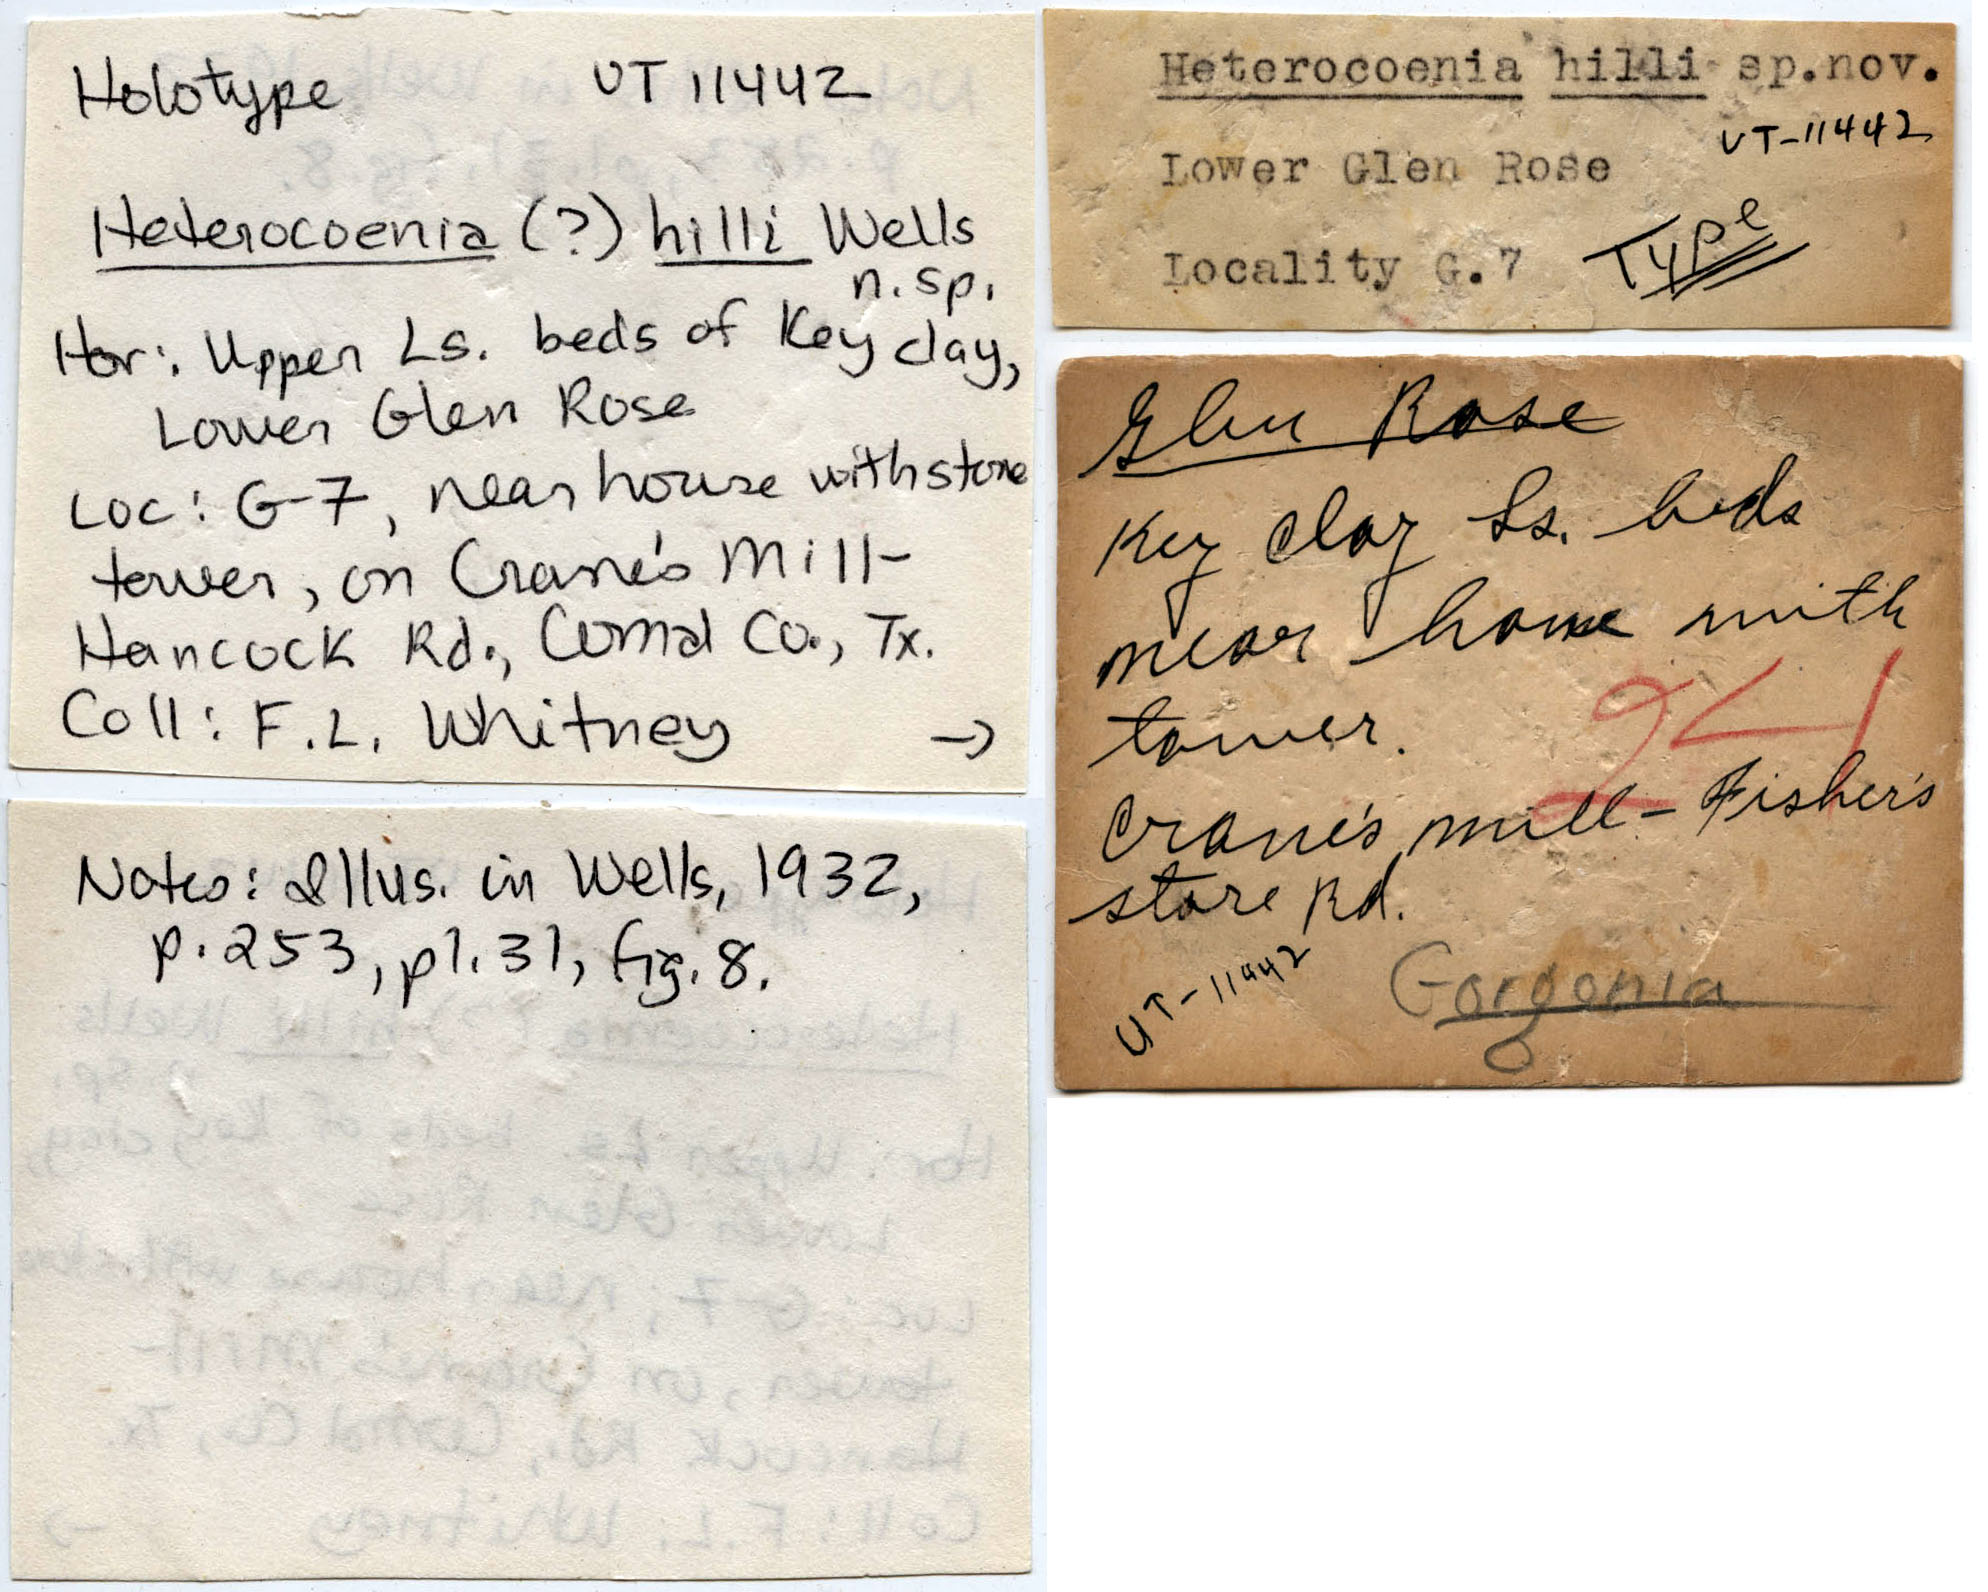 Holotype UT 11442
Heterocoenia (?) hilli Wells
n. sp.
Hor: Upper Ls. beds of Key clay,
Lower Glen Rose
Loc: G-7, near house with stone
tower, on Crane's Mill-
Hancock Rd., Comal Co., Tx.
Coll: F.L. Whitney →
Notes: Illus. in Wells, 1932,
p. 253, pl. 31, fig. 8.
Heterocoenia hilli sp.nov.
UT-11442
Lower Glen Rose
Type
Locality G.7
Glen Rose
Key Clay Ls. beds
near house with
tower.
Crane's mill - Fisher's
store Rd.
UT-11442
Gorgonia